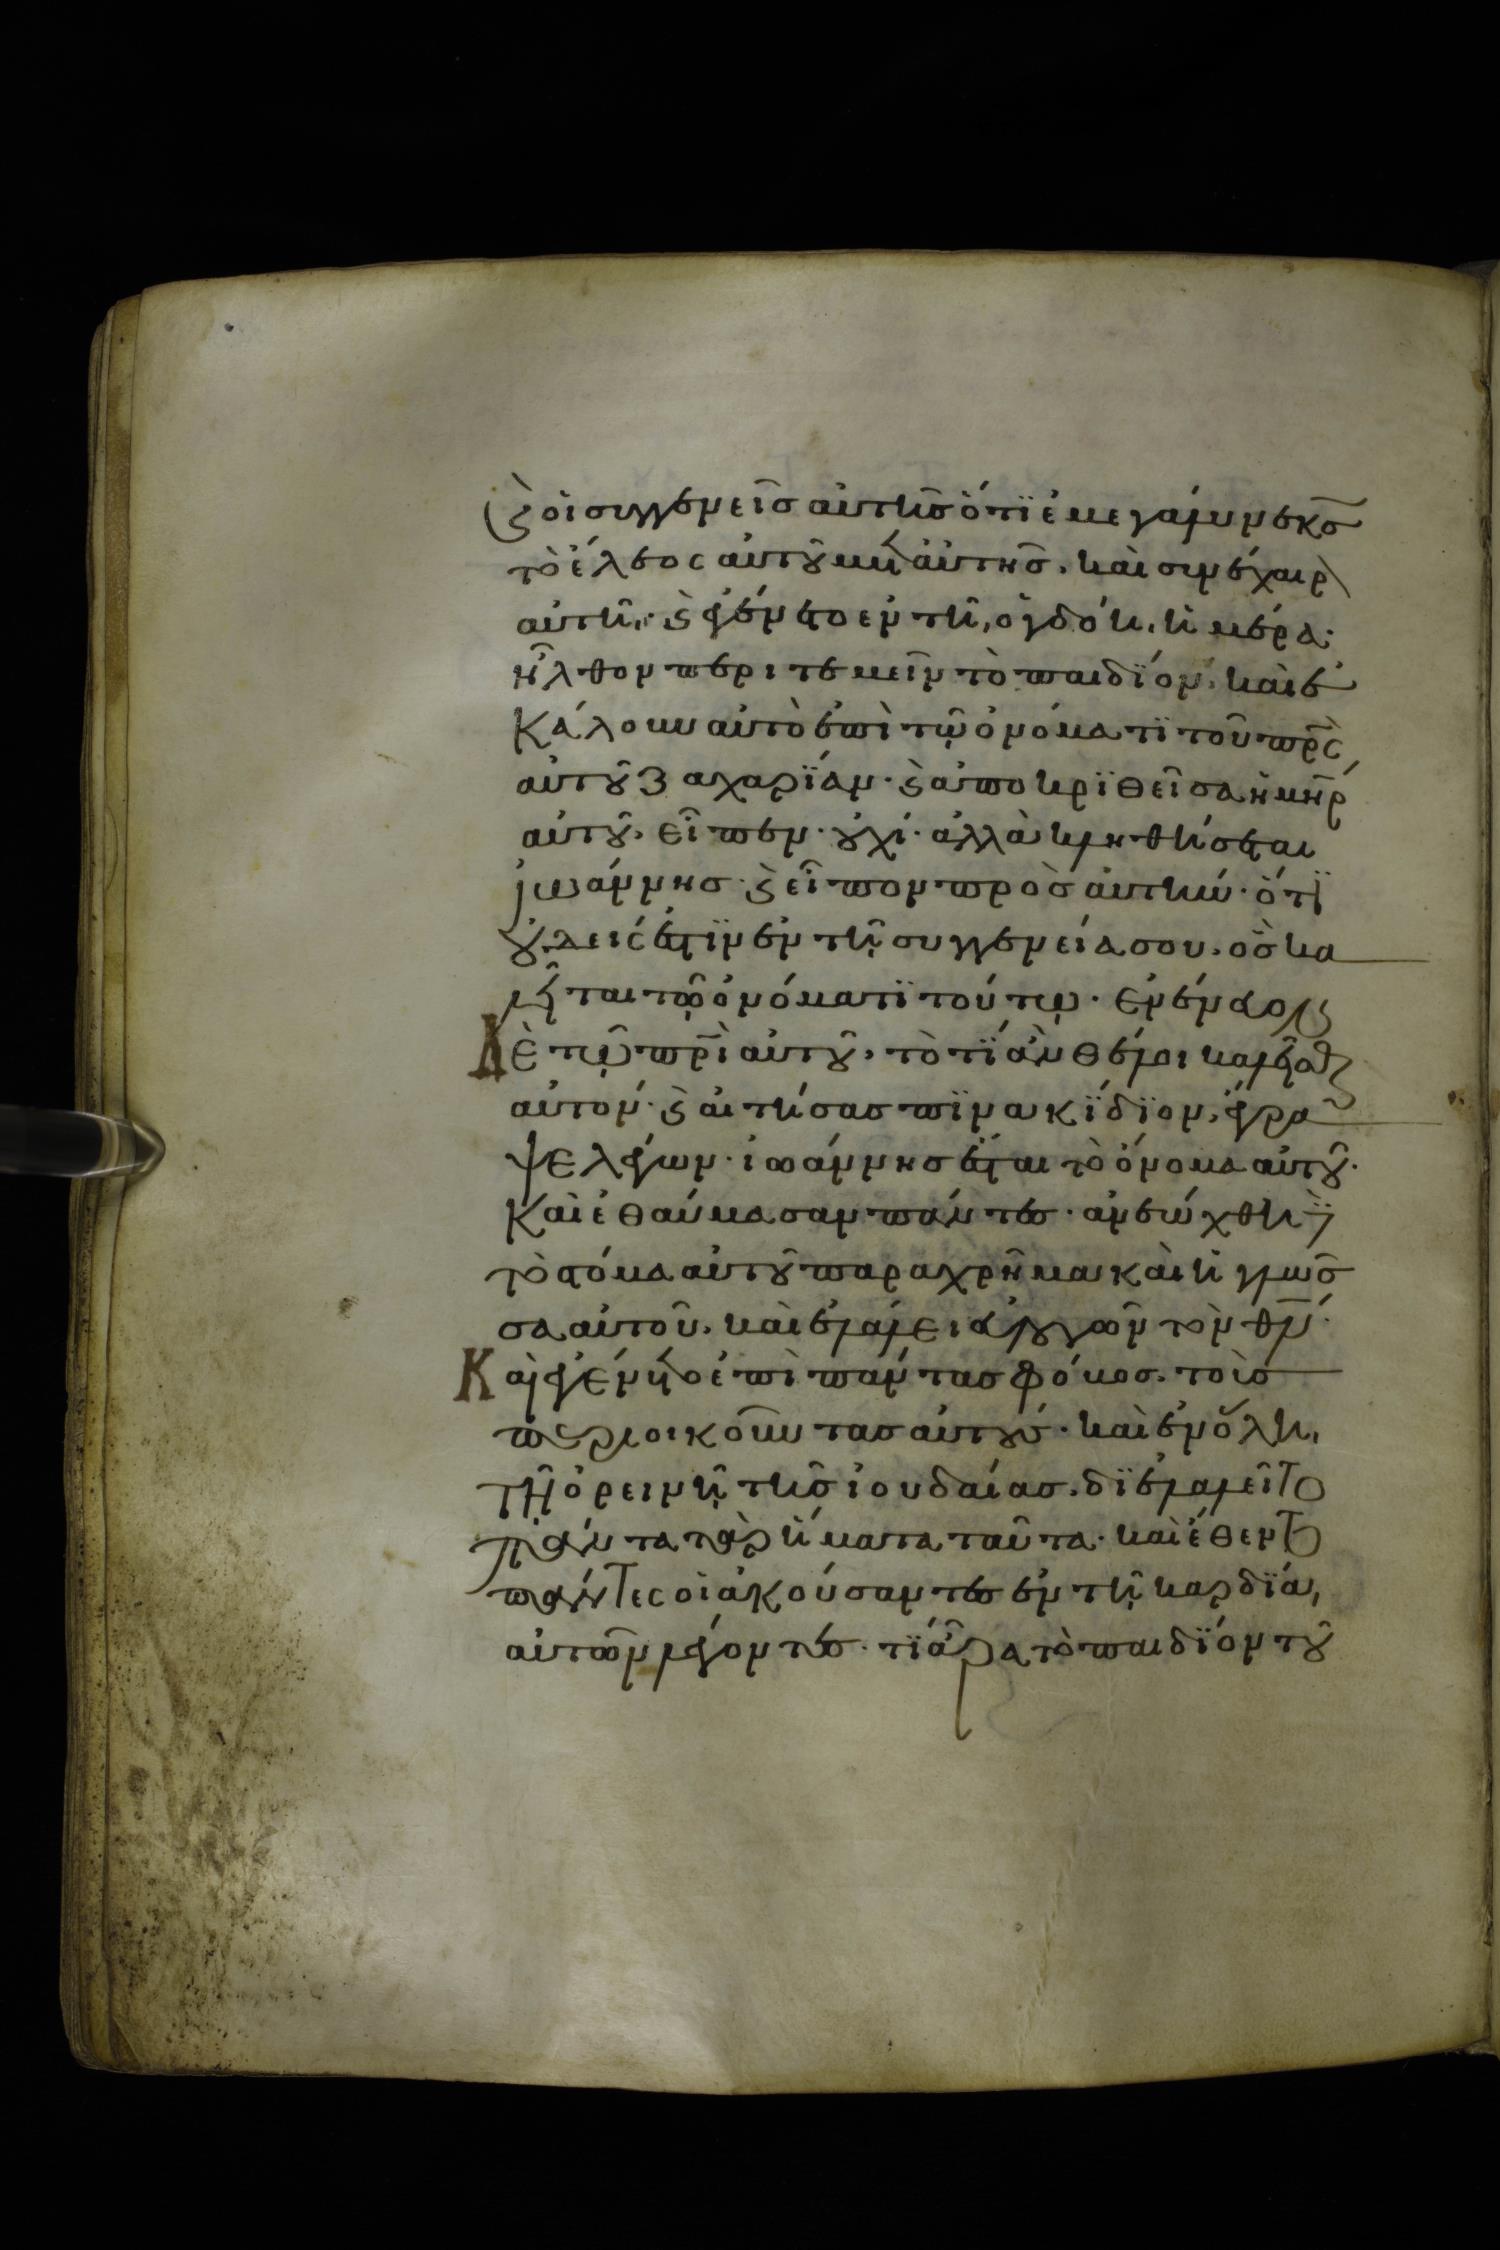 ϗ οἱ συγγενεῖσ αὐτῆσ ὅτϊ ἐμεγάλυνεν κ̅σ̅
τὸ ἔλεος αὐτοῦ μετ αὐτῆσ. καὶ συνέχαιρ
αὐτῆ· ϗ ἐγένετο ἐν τῆ ὀγδόη ἡμέρα·
ἦλθον περιτεμεῖν τὸ παιδΐον. καὶ ἐ
κάλουν αὐτὸ ἐπὶ τῶ ὀνόματϊ τοῦ π̅ρ̅ς̅
αὐτοῦ ζαχαρΐαν· ϗ ἀποκρϊθεῖσα ἡ μ̅η̅ρ̅
αὐτοῦ. εἶπεν· οὐχί· ἀλλὰ κληθήσεται
ἰωάννησ· ϗ εἶπον πρὸσ αὐτήν· ὅτϊ
οὐδείς ἐστϊν ἐν τῆ συγγενεία σου. ὃσ κα
λεῖται τῶ ὀνόματϊ τούτω· ἐνένευον
δὲ τῶ π̅ρ̅ι̅ αὐτοῦ. τὸ τΐ ἂν θέλοι καλεῖσθαι
αὐτόν· ϗ αἰτήσασ πϊνακΐδϊον. ἔγρα
ψε λέγων· ἰωάννησ ἐσται τὸ ὄνομα αὐτοῦ·
καὶ ἐθαύμασαν πάντεσ· ἀνεώχθη δὲ
τὸ στόμα αὐτοῦ παραχρῆμα καὶ ἡ γλῶσ
σα αὐτοῦ. καὶ ἐλάλει εὐλογῶν τὸν θ̅ν̅·
καὶ ἐγένετο ἐπὶ πάντασ φόβοσ. τοὺσ
περιοικοῦντασ αὐτούσ· καὶ ἐν ὅλη
τῆ ὀρεινῆ τῆσ ἰουδαίασ. δϊελαλεῖτο
πάντα τὰ ῥήματα ταῦτα· καὶ ἔθεντο
πάντες οἱ ἀκούσαντεσ ἐν τῆ καρδΐα
αὐτῶν λέγοντεσ· τΐ ἄρα τὸ παιδΐον τοῦ